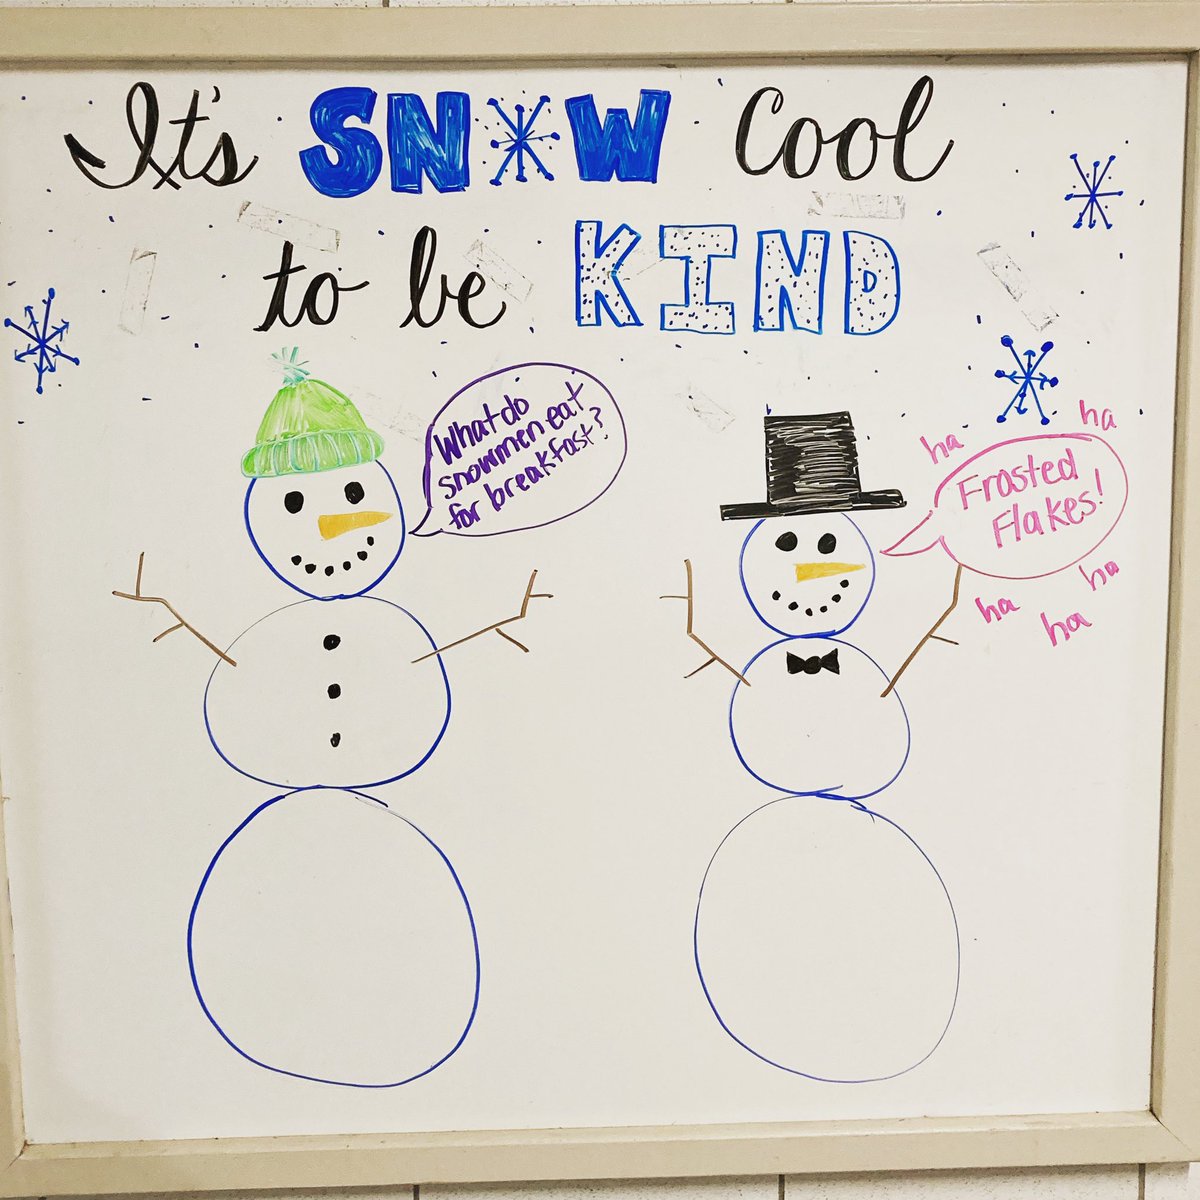 It's SNOW Cool
to be KIND
What do
snowmen eat
for breakfast?
ha
ha
Frosted
Flakes!
ha
ha
ha